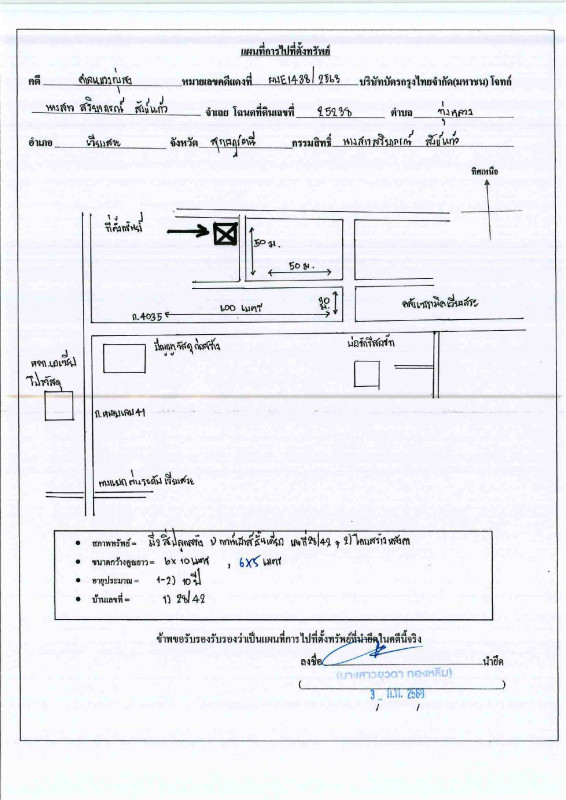 แผนที่การไปที่ตั้งทรัพย์
คดี ศาลแขวงทุ่งสง หมายเลขคดีแดงที่ ผบE1488/2563 บริษัทบัตรกรุงไทยจำกัด(มหาชน) โจทก์
นางสาว สุริยาภรณ์ สังข์แก้ว จำเลย โฉนดที่ดินเลขที่ 25238 ตำบล ทุ่งหลวง
อำเภอ เวียงสระ จังหวัด สุราษฎร์ธานี กรรมสิทธิ์ นางสาวสุริยาภรณ์ สังข์แก้ว
ทิศเหนือ
ที่ตั้งทรัพย์
50 ม.
50 ม.
600 เมตร
30 ม.
ถ.4035
บ่อขักรีสอร์ท
หจก.เอเซีย
โปรวัสดุ
ถ.หมายเลข 41
สภาพทรัพย์ = มี 2 สิ่งปลูกสร้าง 1) ทาวน์เฮาส์ชั้นเดียว เลขที่ 28/42 , 2) โครงสร้างหลังคา
ขนาดกว้างคูณยาว = 6 x 10 เมตร , 6x5 เมตร
อายุประมาณ = 1-2) 10 ปี
บ้านเลขที่ = 1) 28/42
ข้าพขอรับรองรับรองว่าเป็นแผนที่การไปที่ตั้งทรัพย์ที่นำยึดในคดีนี้จริง
ลงชื่อ นำยึด
(นางสาวยุวดา ทองหลิม)
3 ก.ค. 2569